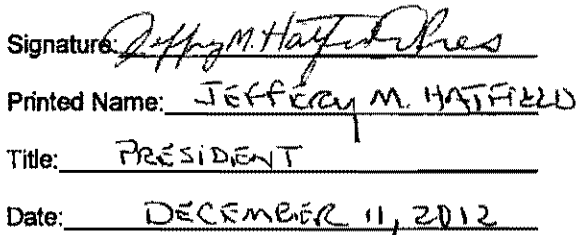 Signature: Jeffry M. Hatfield Pres
Printed Name: JEFFERY M. HATFIELD
Title: PRESIDENT
Date: DECEMBER 11, 2012